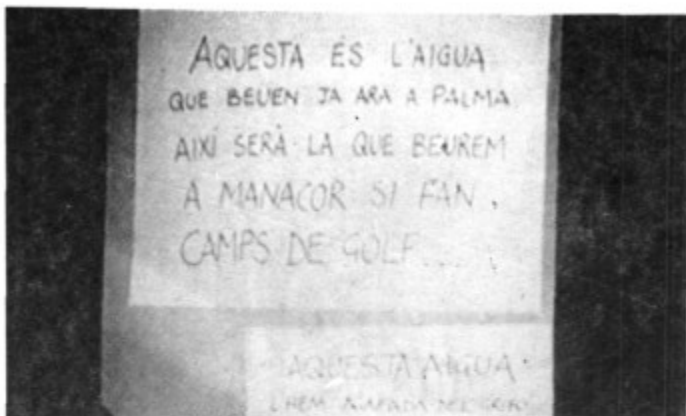 AQUESTA ÉS L'AIGUA
QUE BEUEN JA ARA A PALMA
AIXÍ SERÀ LA QUE BEUREM
A MANACOR SI FAN
CAMPS DE GOLF....
AQUESTA AIGUA
L'HEM AGAFADA DEL GRIFO